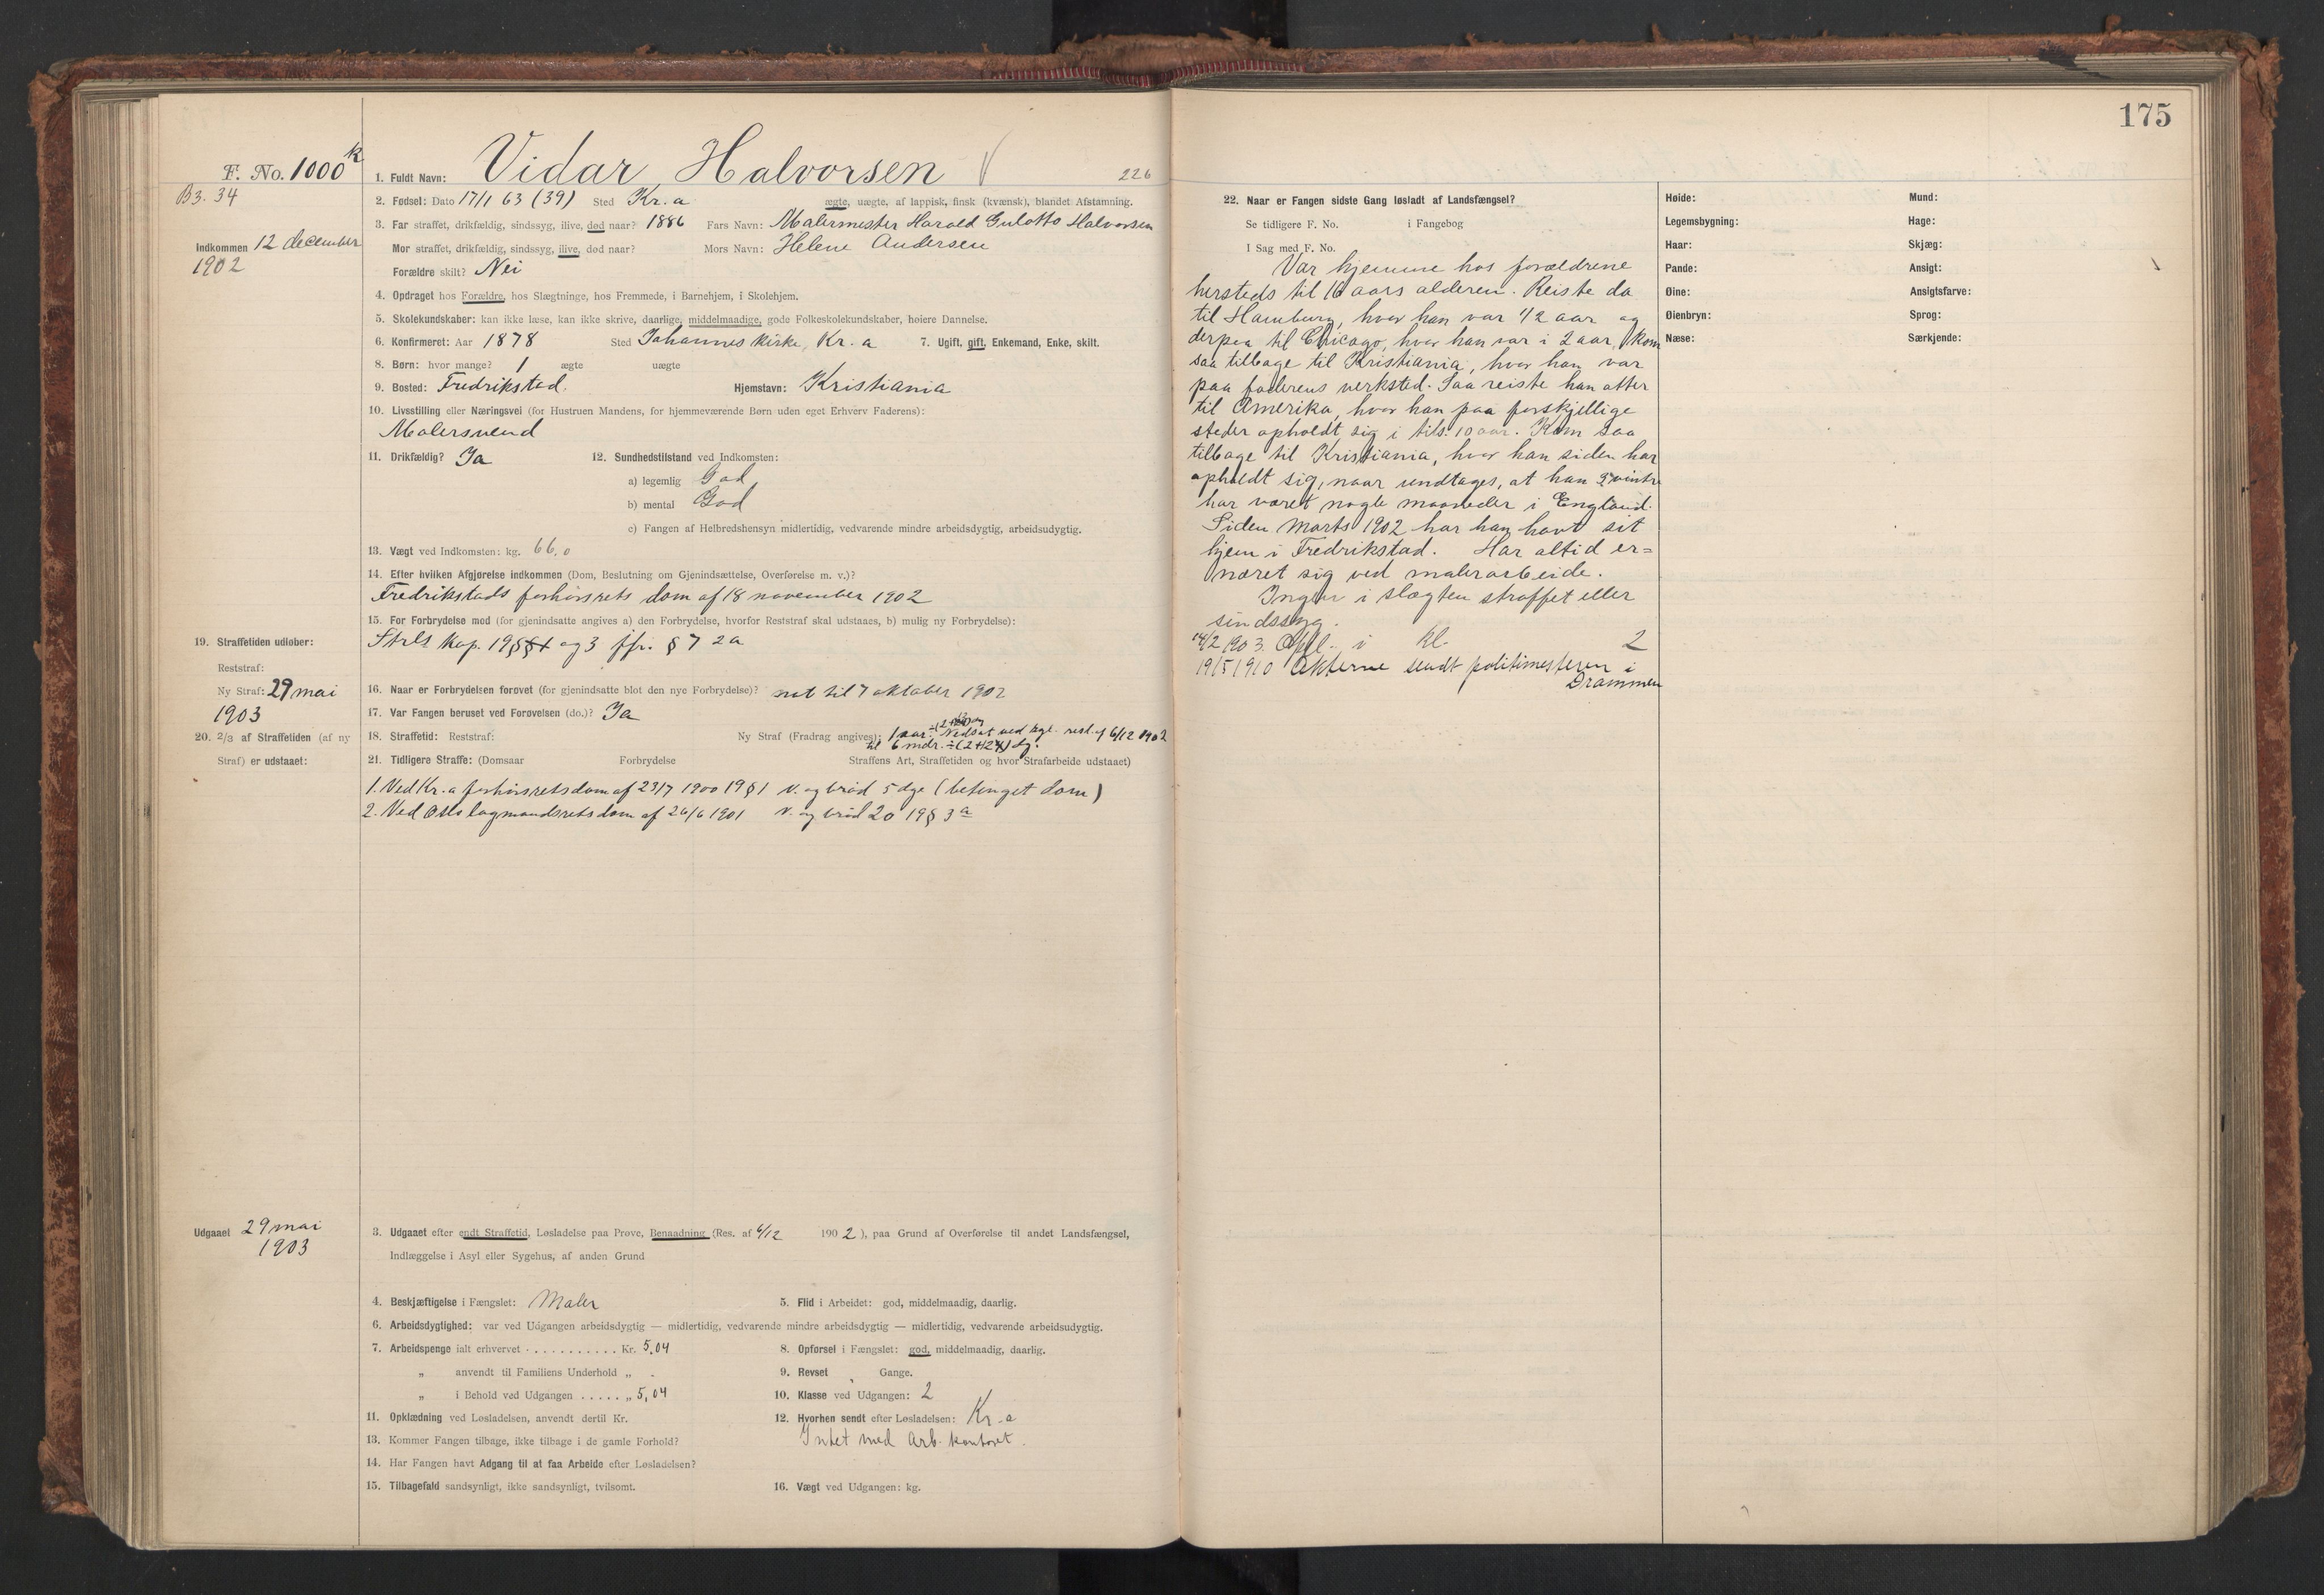 175
F. No. 1000 k
B3. 34
Indkommen 12 december
1902
1. Fuldt Navn: Vidar Halvorsen 226
2. Fødsel: Dato 17/1 63 (39) Sted Kr.a ægte, uægte, af lappisk, finsk (kvænsk), blandet Afstamning.
3. Far straffet, drikfældig, sindssyg, ilive, død naar? 1886 Fars Navn: Malermester Harald Gulotto Halvorsen
Mor straffet, drikfældig, sindssyg, ilive, død naar? Mors Navn: Helene Andersen
Forældre skilt? Nei
4. Opdraget hos Forældre, hos Slægtninge, hos Fremmede, i Barnehjem, i Skolehjem.
5. Skolekundskaber: kan ikke læse, kan ikke skrive, daarlige, middelmaadige, gode Folkeskolekundskaber, høiere Dannelse.
6. Konfirmeret: Aar 1878 Sted Johannes kirke, Kr.a 7. Ugift, gift, Enkemand, Enke, skilt.
8. Børn: hvor mange? 1 ægte uægte
9. Bosted: Fredrikstad. Hjemstavn: Kristiania
10. Livsstilling eller Næringsvei (for Hustruen Mandens, for hjemmeværende Børn uden eget Erhverv Faderens):
Malersvend
11. Drikfældig? Ja 12. Sundhedstilstand ved Indkomsten:
a) legemlig God
b) mental God
c) Fangen af Helbredshensyn midlertidig, vedvarende mindre arbeidsdygtig, arbeidsudygtig.
13. Vægt ved Indkomsten: kg. 66,0
14. Efter hvilken Afgjørelse indkommen (Dom, Beslutning om Gjenindsættelse, Overførelse m. v.)?
Fredrikstads forhørsrets dom af 18 november 1902
15. For Forbrydelse mod (for gjenindsatte angives a) den Forbrydelse, hvorfor Reststraf skal udstaaes, b) mulig ny Forbrydelse):
Strls Kap. 19 §§ 1 og 3 jfr. § 7 2a
19. Straffetiden udløber:
Reststraf:
Ny Straf: 29 mai
1903
20. 2/3 af Straffetiden (af ny
Straf) er udstaaet:
16. Naar er Forbrydelsen forøvet (for gjenindsatte blot den nye Forbrydelse)? nat til 7 oktober 1902
17. Var Fangen beruset ved Forøvelsen (do.)? Ja
18. Straffetid: Reststraf: Ny Straf (Fradrag angives): 1 aar Nedsat ved kgl. resl. af 6/12 1902
til 6 mdr. ÷ (2+12) dg.
21. Tidligere Straffe: (Domsaar Forbrydelse Straffens Art, Straffetiden og hvor Strafarbeide udstaaet)
1. Ved Kr.a forhørsretsdom af 23/7 1900 19 § 1 v. og brød 5 dge (betinget dom)
2. Ved Oslo lagmandsretsdom af 26/6 1901 v. og brød 20 19 § 3 a
Udgaaet 29 mai
1903
3. Udgaaet efter endt Straffetid, Løsladelse paa Prøve, Benaadning (Res. af 6/12 1902), paa Grund af Overførelse til andet Landsfængsel,
Indlæggelse i Asyl eller Sygehus, af anden Grund
4. Beskjæftigelse i Fængslet: Maler 5. Flid i Arbeidet: god, middelmaadig, daarlig.
6. Arbeidsdygtighed: var ved Udgangen arbeidsdygtig — midlertidig, vedvarende mindre arbeidsdygtig — midlertidig, vedvarende arbeidsudygtig.
7. Arbeidspenge ialt erhvervet . . . . . . . . . . . Kr. 5,04 8. Opførsel i Fængslet: god, middelmaadig, daarlig.
„ anvendt til Familiens Underhold „ - 9. Revset „ Gange.
„ i Behold ved Udgangen . . . . . „ 5,04 10. Klasse ved Udgangen: 2
11. Opklædning ved Løsladelsen, anvendt dertil Kr. 12. Hvorhen sendt efter Løsladelsen: Kr.a
13. Kommer Fangen tilbage, ikke tilbage i de gamle Forhold? Intet med Arb. kontoret.
14. Har Fangen havt Adgang til at faa Arbeide efter Løsladelsen?
15. Tilbagefald sandsynligt, ikke sandsynligt, tvilsomt. 16. Vægt ved Udgangen: kg.
22. Naar er Fangen sidste Gang løsladt af Landsfængsel?
Se tidligere F. No. i Fangebog
I Sag med F. No.
Var hjemme hos forældrene
hersteds til 16 aars alderen. Reiste da
til Hamburg, hvor han var 1/2 aar og
derpaa til Chicago, hvor han var i 2 aar, kom
saa tilbage til Kristiania, hvor han var
paa faderens verksted. Saa reiste han atter
til Amerika, hvor han paa forskjellige
steder opholdt sig i tils. 10 aar. Kom saa
tilbage til Kristiania, hvor han siden har
opholdt sig, naar undtages, at han 2 vintre
har været nogle maaneder i England.
Siden Marts 1902 har han havt sit
hjem i Fredrikstad. Har altid er=
næret sig ved malerarbeide.
Ingen i slægten straffet eller
sindssyg.
14/2 1903. Opfl. i kl. 2
19/5 1910 Akterne sendt politimesteren i
Drammen
Høide:
Legemsbygning:
Haar:
Pande:
Øine:
Øienbryn:
Næse:
Mund:
Hage:
Skjæg:
Ansigt:
Ansigtsfarve:
Sprog:
Særkjende: